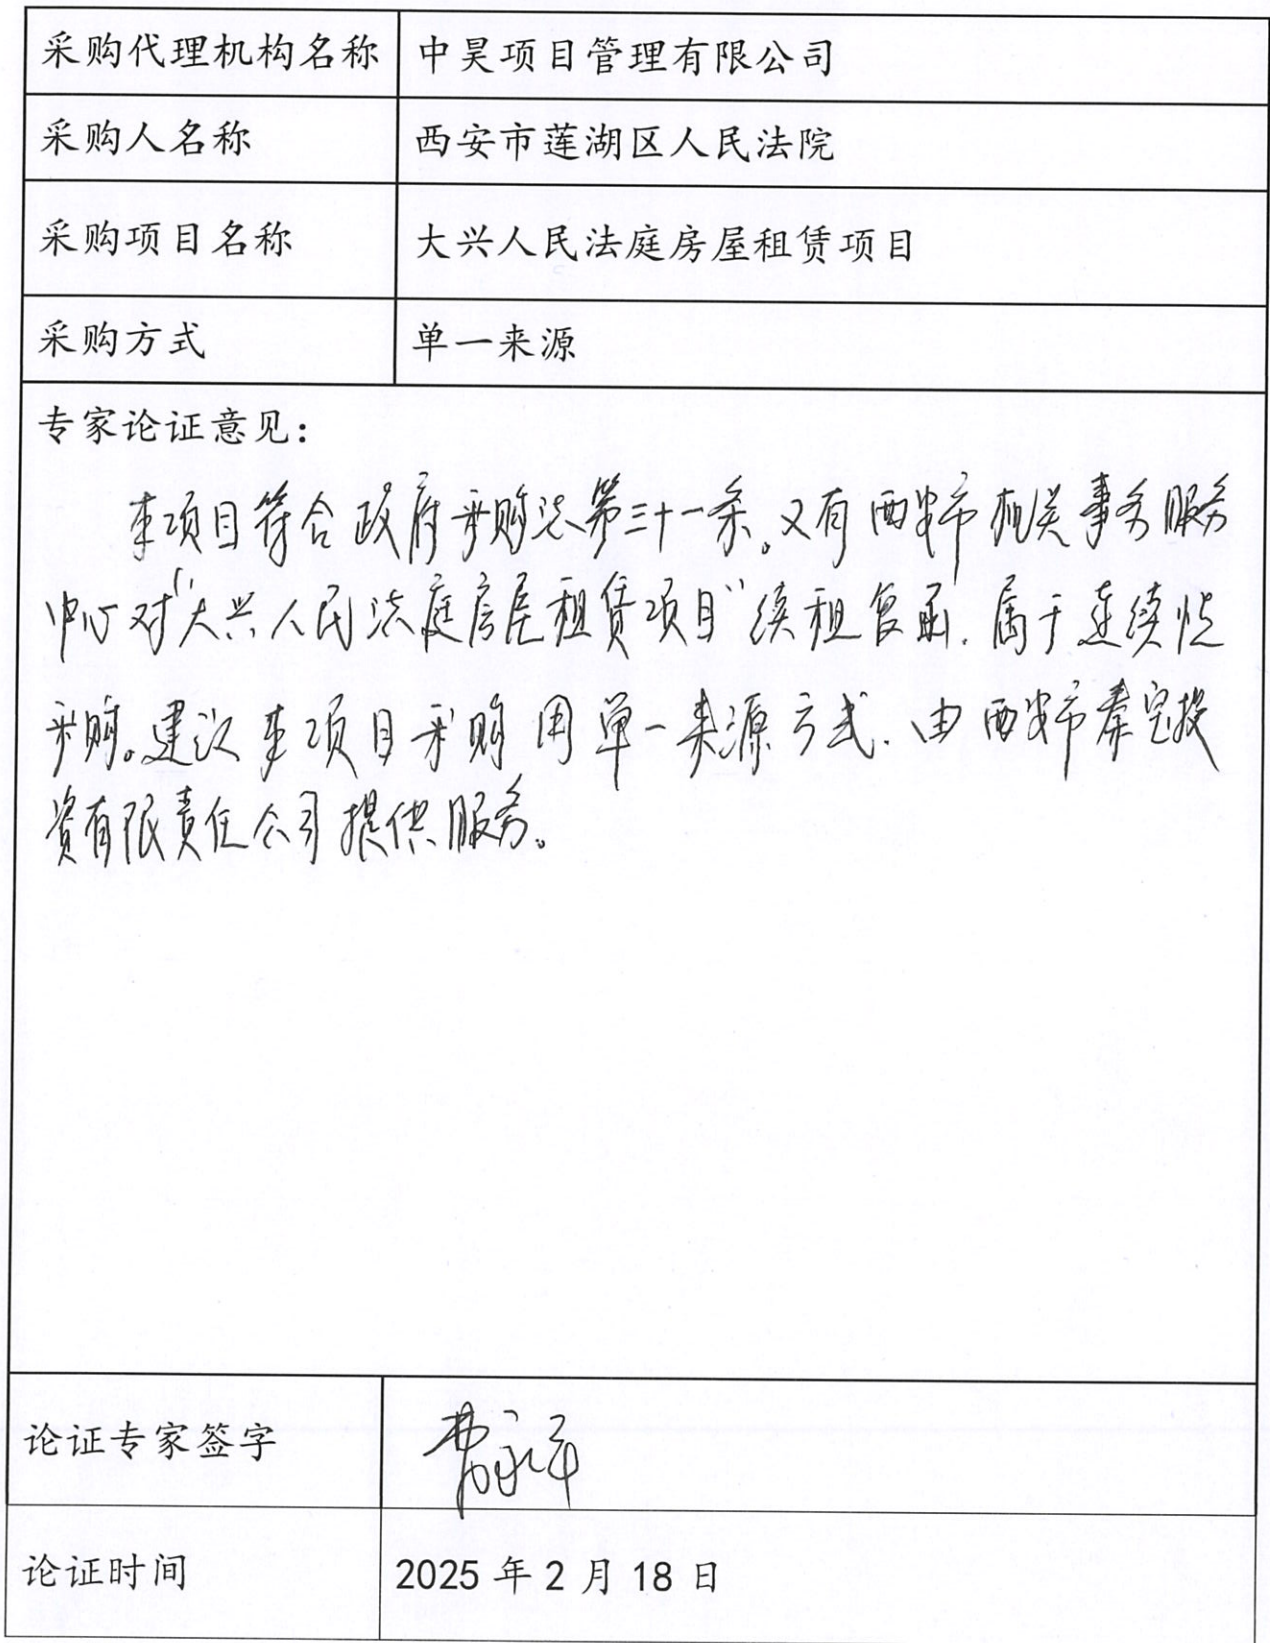 采购代理机构名称 中昊项目管理有限公司
采购人名称 西安市莲湖区人民法院
采购项目名称 大兴人民法庭房屋租赁项目
采购方式 单一来源
专家论证意见：
本项目符合政府采购法第三十一条。又有西安市机关事务服务
中心对“大兴人民法庭房屋租赁项目”续租复函，属于连续性
采购。建议本项目采购用单一来源方式，由西安市秦宝投
资有限责任公司提供服务。
论证专家签字
论证时间 2025 年 2 月 18 日